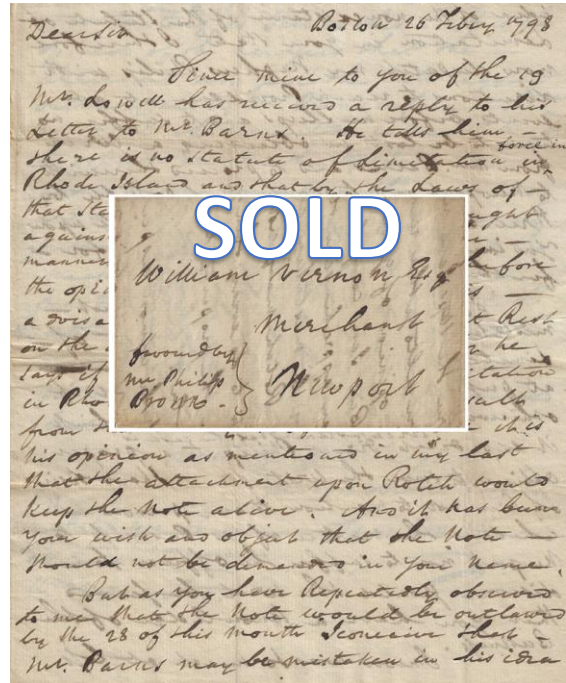 Dear Sir
Boston 26 Feby 1798
Since mine to you of the 19
Mr. Lowell has received a reply to his
Letter to Mr. Barns. He tells him —
there is no Statute of Limitation in
force in
Rhode Island and that by the Laws of —
that Sta
ught
agains
manner
fore
the opi
is —
a dvisa
t Rest
on the
he
Says if
itation
in Rho
sult
from
it is
his opinion as mentioned in my last
that the attachment upon Rotch would
keep the Note alive. And it has been
your wish and object that the Note —
should not be demanded in your Name.
But as you have Repeatedly observed
to me that the Note would be outlawed
by the 28 of this month I conceive that
Mr. Barns may be mistaken in his idea
SOLD
William Vernon Esq
Merchant
favoured by
Mr Philip
Brown
Newport